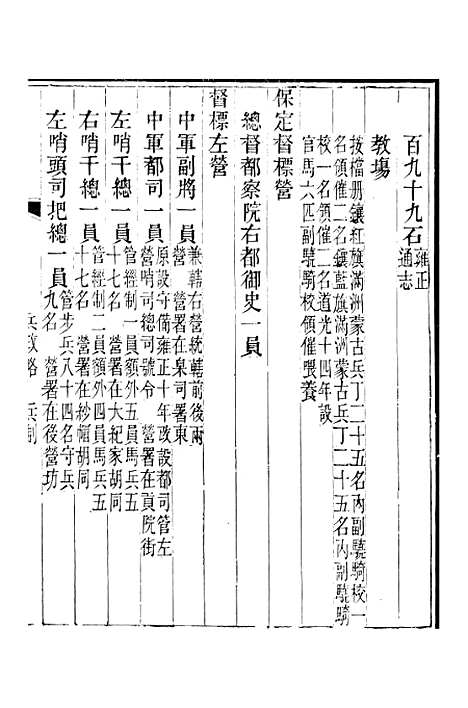 百九十九石雍正
通志
教場
按檔册鑲紅旗滿洲蒙古兵丁二十五名內副驍騎校一
名領催二名鑲藍旗滿洲蒙古兵丁二十五名內副驍騎
校一名領催二名道光十四年設
官馬六匹副驍騎校領催喂養
保定督標營
總督都察院右都御史一員
督標左營
中軍副將一員
兼轄右營統轄前後兩
營 營署在臬司署東
中軍都司一員
原設守備雍正十年改設都司管左
營哨司總司號令 營署在貢院街
左哨千總一員
管經制一員額外五員馬兵五
十七名 營署在大紀家胡同
右哨千總一員
管經制二員額外四員馬兵五
十七名 營署在紗帽胡同
左哨頭司把總一員
管步兵八十四名守兵
九名 營署在後營坊
兵政略 兵制